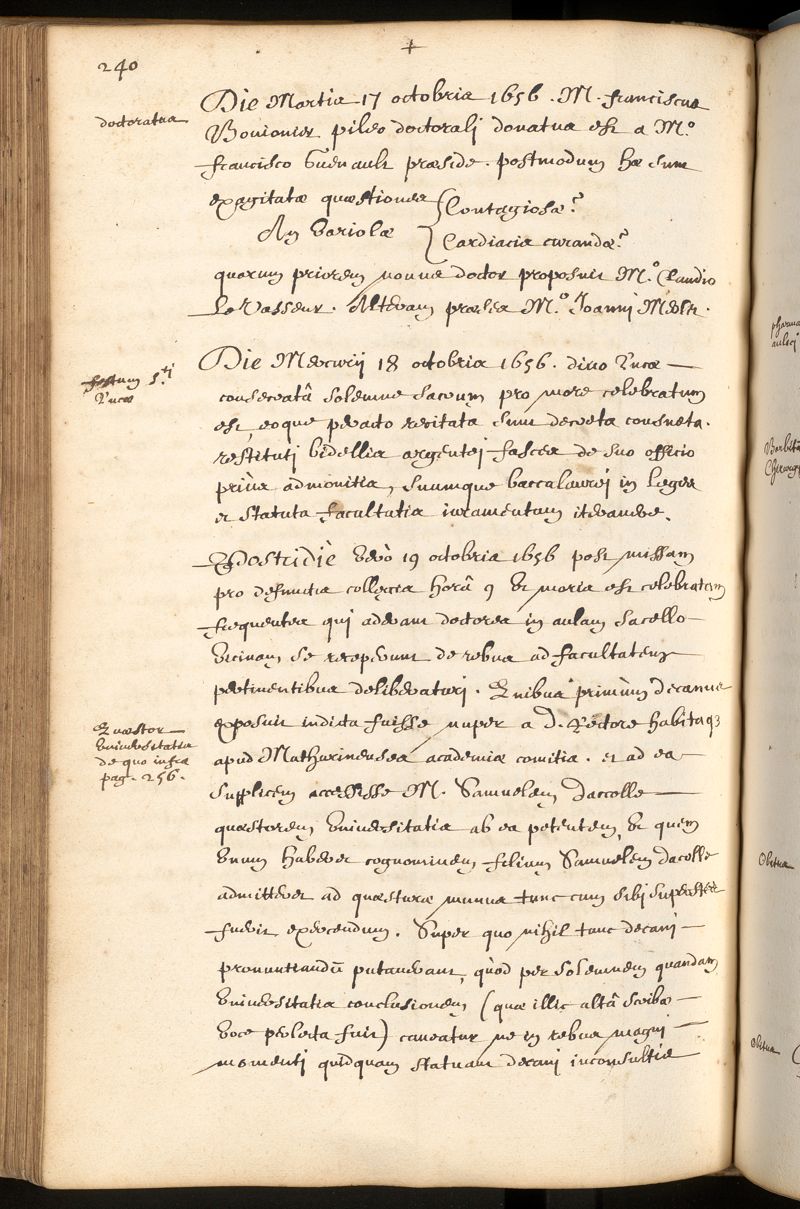 240
+
doctoratus
Die Martis 17 octobris 1656. M. franciscus
Bouionier pileo doctorali donatus est a M.º
francisco Guenault præside. postmodum hæ sunt
exagitatæ quæstiones { Contagiosæ?
An Variolæ } Cardiacis curandæ?
quarum priorem nouus doctor proposuit M.º Claudio
Le Vasseur. Alteram præses M.º Joanni Merlet.
festum S.ti
Lucæ
Die Mercurij 18 octobris 1656. diuo Lucæ
consecratâ solemne sacrum pro more celebratum
est, eoque peracto recitata sunt decreta consueta.
restituti bidellis argentei fasces de suo officio
prius admonitis, suumque baccalaurei in leges
et statuta facultatis iuramentum iterauere.
Postridiè verò 19 octobris 1656 post missam
pro defunctis collegis horâ 9 et moris est celebratam
frequentes qui aderant doctores in aulam sacello
vicinam se receperunt de rebus ad facultatem
pertinentibus deliberaturi. Quibus primùm decanus
Quæstor
Vniuersitatis
de quo infra
pag. 256.
exposuit indicta fuisse nuper a D. Rectore habitaq3
apud Mathurinenses academiæ comitia. et ad ea
supplicem accessisse M. Samuelem dacolle
quæstorem Vniuersitatis ab ea petentem, et quem
vnum haberet cognominem filium Samuelem dacolle
admitteret ad quæsturæ munus tunc cum sibi superstes
fuerit exercendum. Super quo nihil tunc decani
pronuntiandū putauerant, quòd per solemnem quandam
Vniuersitatis conclusionem (quæ illic altâ scribæ
voce prolecta fuit) caueatur ne in rebus magni
momenti quidquam statuant decani inconsultis
pharma
aulici
Barbito
Chirurg
Obitus
Obitus